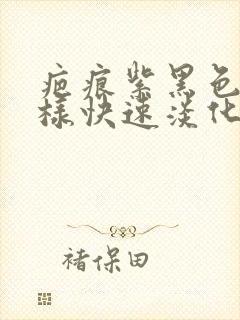 疤痕紫黑色
样快速淡化
褚保田